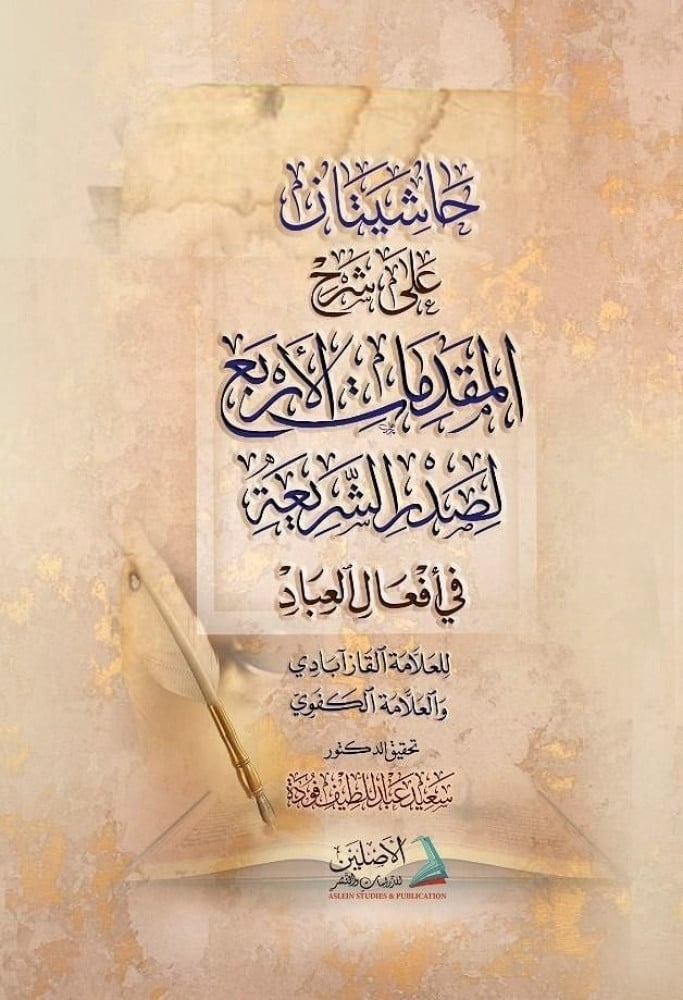 حَاشِيَتَان
عَلَى شَرْحِ
المُقَدِّمَاتِ الأَرْبَعِ
لِصَدْرِ الشَّرِيعَةِ
فِي أَفْعَالِ العِبَادِ
لِلعَلَّامَةِ القَازآبَادِي
وَالعَلَّامَةِ الكَفَوِيّ
تحقيق الدكتور
سَعِيد عَبْد اللَّطِيف فُودَة
الأَصْلَيْن
للدراسات والنشر
ASLEIN STUDIES & PUBLICATION